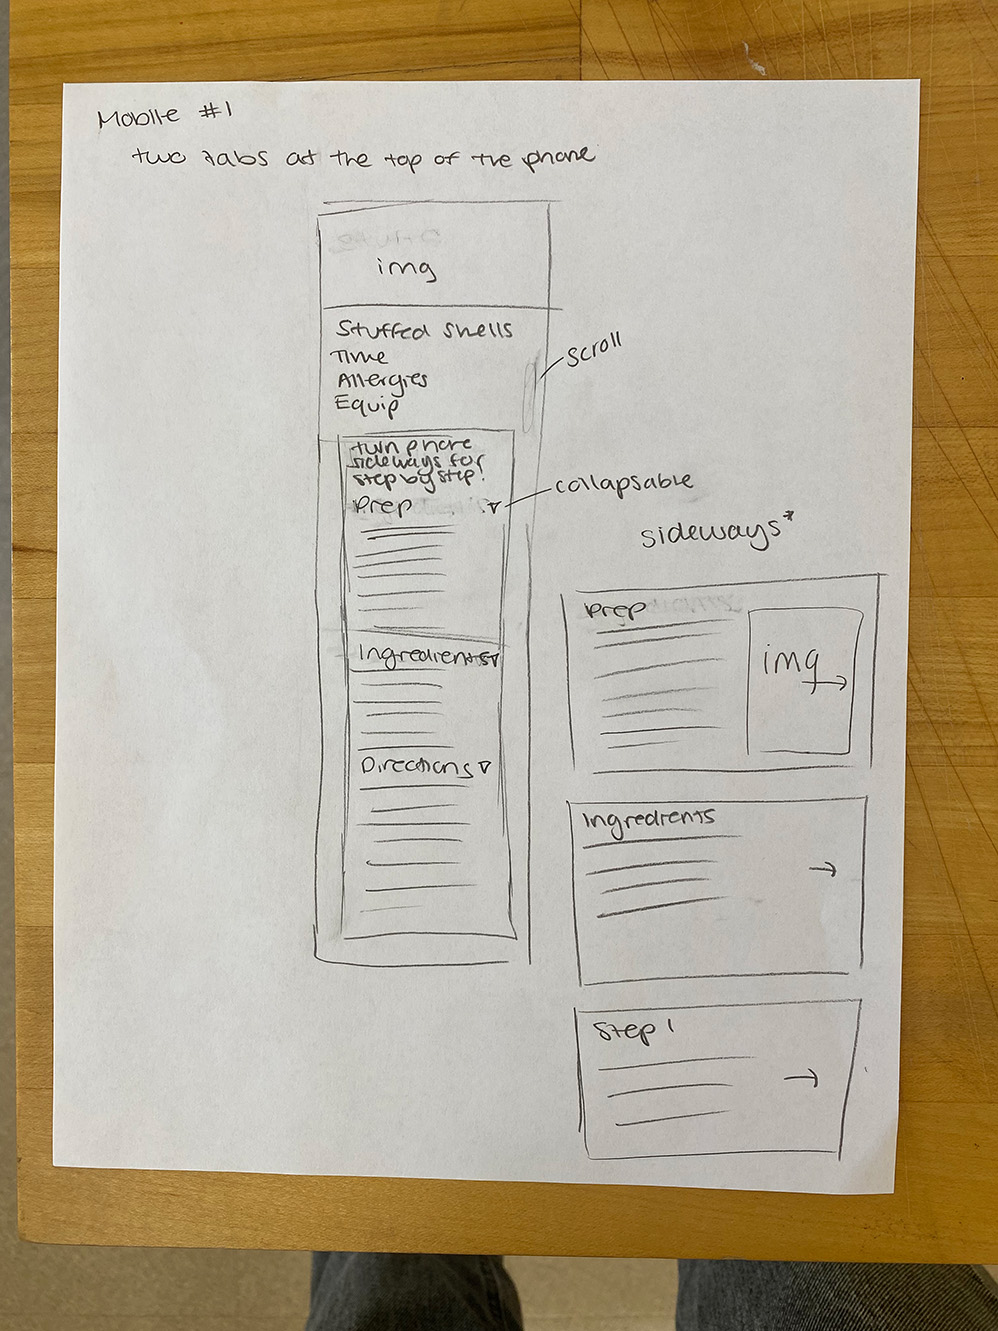 Mobile #1
two tabs at the top of the phone
img
Stuffed shells
Time
Allergies
Equip
scroll
turn phone
sideways for
step by step!
Prep
collapsable
Ingredients
Directions
sideways*
Prep
img
Ingredients
Step 1